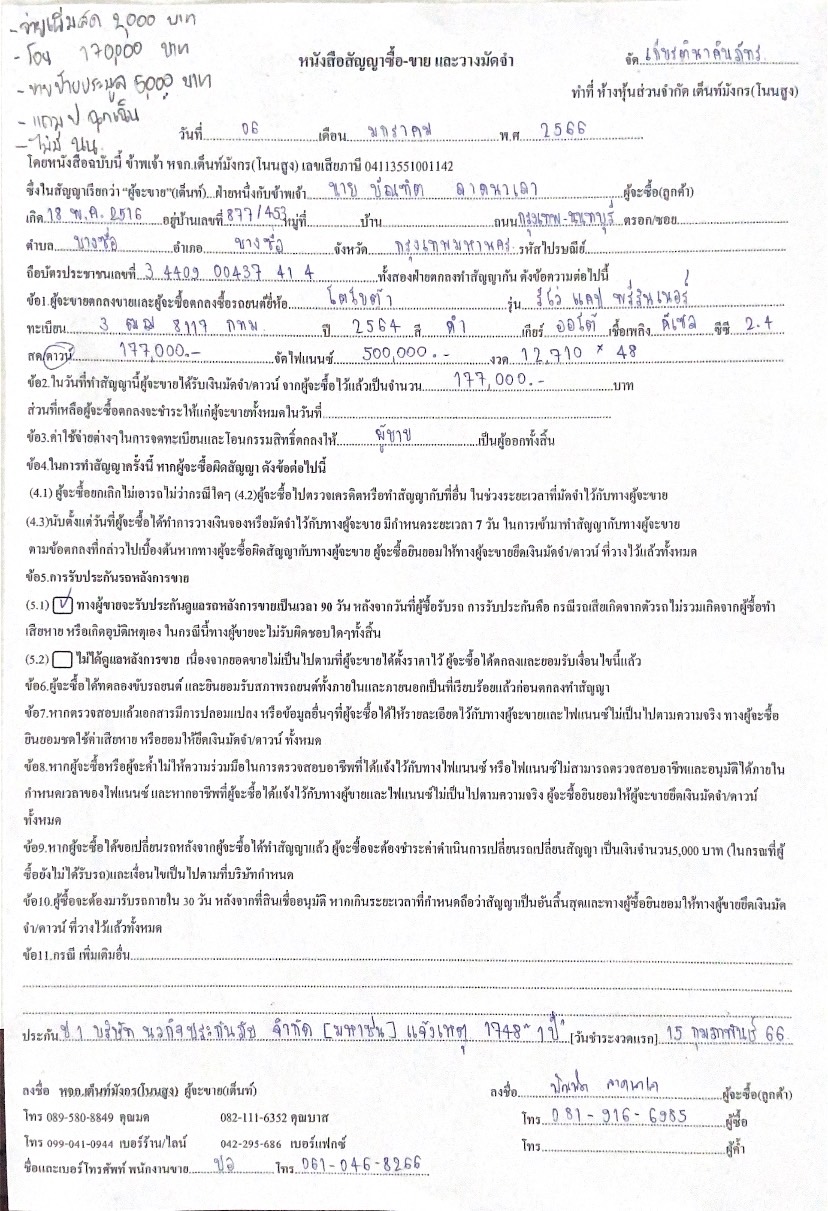 - จ่ายเพิ่มสด 2,000 บาท
- โอน 170,000 บาท
- ขายป้ายประมูล 5,000 บาท
- แถม ป ฉุกเฉิน
- ไม่มี นน.
หนังสือสัญญาซื้อ-ขาย และวางมัดจำ
จัด เกียรตินาคินภัทร
ทำที่ ห้างหุ้นส่วนจำกัด เต็นท์มังกร(โนนสูง)
วันที่ 06 เดือน มกราคม พ.ศ 2566
โดยหนังสือฉบับนี้ ข้าพเจ้า หจก.เต็นท์มังกร(โนนสูง) เลขเสียภาษี 04113551001142
ซึ่งในสัญญาเรียกว่า "ผู้จะขาย"(เต็นท์)...ฝ่ายหนึ่งกับข้าพเจ้า นาย บัณฑิต ลาดนาเลา ผู้จะซื้อ(ลูกค้า)
เกิด 18 พ.ค. 2516 อยู่บ้านเลขที่ 877/453 หมู่ที่ บ้าน ถนน กรุงเทพ-นนทบุรี ตรอก/ซอย
ตำบล บางซื่อ อำเภอ บางซื่อ จังหวัด กรุงเทพมหานคร รหัสไปรษณีย์
ถือบัตรประชาชนเลขที่ 3 4409 00437 41 4 ทั้งสองฝ่ายตกลงทำสัญญากัน ดังข้อความต่อไปนี้
ข้อ1.ผู้จะขายตกลงขายและผู้จะซื้อตกลงซื้อรถยนต์ยี่ห้อ โตโยต้า รุ่น รีโว่ แคป พรีรันเนอร์
ทะเบียน 3 ฒฌ 8117 กทม ปี 2564 สี ดำ เกียร์ ออโต้ เชื้อเพลิง ดีเซล ซีซี 2.4
สด/ดาวน์ 177,000.- จัดไฟแนนซ์ 500,000.- งวด 12,710 * 48
ข้อ2.ในวันที่ทำสัญญานี้ผู้จะขายได้รับเงินมัดจำ/ดาวน์ จากผู้จะซื้อไว้แล้วเป็นจำนวน 177,000.- บาท
ส่วนที่เหลือผู้จะซื้อตกลงจะชำระให้แก่ผู้จะขายทั้งหมดในวันที่
ข้อ3.ค่าใช้จ่ายต่างๆในการจดทะเบียนและโอนกรรมสิทธิ์ตกลงให้ ผู้ขาย เป็นผู้ออกทั้งสิ้น
ข้อ4.ในการทำสัญญาครั้งนี้ หากผู้จะซื้อผิดสัญญา ดังข้อต่อไปนี้
(4.1) ผู้จะซื้อยกเลิกไม่เอารถไม่ว่ากรณีใดๆ (4.2)ผู้จะซื้อไปตรวจเครดิตหรือทำสัญญากับที่อื่น ในช่วงระยะเวลาที่มัดจำไว้กับทางผู้จะขาย
(4.3)นับตั้งแต่วันที่ผู้จะซื้อได้ทำการวางเงินจองหรือมัดจำไว้กับทางผู้จะขาย มีกำหนดระยะเวลา 7 วัน ในการเข้ามาทำสัญญากับทางผู้จะขาย
ตามข้อตกลงที่กล่าวไปเบื้องต้นหากทางผู้จะซื้อผิดสัญญากับทางผู้จะขาย ผู้จะซื้อยินยอมให้ทางผู้จะขายยึดเงินมัดจำ/ดาวน์ ที่วางไว้แล้วทั้งหมด
ข้อ5.การรับประกันรถหลังการขาย
(5.1) ☑ ทางผู้ขายจะรับประกันดูแลรถหลังการขายเป็นเวลา 90 วัน หลังจากวันที่ผู้ซื้อรับรถ การรับประกันคือ กรณีรถเสียเกิดจากตัวรถไม่รวมเกิดจากผู้ซื้อทำ
เสียหาย หรือเกิดอุบัติเหตุเอง ในกรณีนี้ทางผู้ขายจะไม่รับผิดชอบใดๆทั้งสิ้น
(5.2) ☐ ไม่ได้ดูแลหลังการขาย เนื่องจากยอดขายไม่เป็นไปตามที่ผู้จะขายได้ตั้งราคาไว้ ผู้จะซื้อได้ตกลงและยอมรับเงื่อนไขนี้แล้ว
ข้อ6.ผู้จะซื้อได้ทดลองขับรถยนต์ และยินยอมรับสภาพรถยนต์ทั้งภายในและภายนอกเป็นที่เรียบร้อยแล้วก่อนตกลงทำสัญญา
ข้อ7.หากตรวจสอบแล้วเอกสารมีการปลอมแปลง หรือข้อมูลอื่นๆที่ผู้จะซื้อได้ให้รายละเอียดไว้กับทางผู้จะขายและไฟแนนซ์ไม่เป็นไปตามความจริง ทางผู้จะซื้อ
ยินยอมชดใช้ค่าเสียหาย หรือยอมให้ยึดเงินมัดจำ/ดาวน์ ทั้งหมด
ข้อ8.หากผู้จะซื้อหรือผู้จะค้ำไม่ให้ความร่วมมือในการตรวจสอบอาชีพที่ได้แจ้งไว้กับทางไฟแนนซ์ หรือไฟแนนซ์ไม่สามารถตรวจสอบอาชีพและอนุมัติได้ภายใน
กำหนดเวลาของไฟแนนซ์ และหากอาชีพที่ผู้จะซื้อได้แจ้งไว้กับทางผู้ขายและไฟแนนซ์ไม่เป็นไปตามความจริง ผู้จะซื้อยินยอมให้ผู้จะขายยึดเงินมัดจำ/ดาวน์
ทั้งหมด
ข้อ9.หากผู้จะซื้อได้ขอเปลี่ยนรถหลังจากผู้จะซื้อได้ทำสัญญาแล้ว ผู้จะซื้อจะต้องชำระค่าดำเนินการเปลี่ยนรถเปลี่ยนสัญญา เป็นเงินจำนวน5,000 บาท (ในกรณที่ผู้
ซื้อยังไม่ได้รับรถ)และเงื่อนไขเป็นไปตามที่บริษัทกำหนด
ข้อ10.ผู้ซื้อจะต้องมารับรถภายใน 30 วัน หลังจากที่สินเชื่ออนุมัติ หากเกินระยะเวลาที่กำหนดถือว่าสัญญาเป็นอันสิ้นสุดและทางผู้ซื้อยินยอมให้ทางผู้ขายยึดเงินมัด
จำ/ดาวน์ ที่วางไว้แล้วทั้งหมด
ข้อ11.กรณี เพิ่มเติมอื่น
ประกัน ป 1 บริษัท นวกิจประกันภัย จำกัด [มหาชน] แจ้งเหตุ 1748 "1 ปี" [วันชำระงวดแรก] 15 กุมภาพันธ์ 66
ลงชื่อ หจก.เต็นท์มังกร(โนนสูง) ผู้จะขาย(เต็นท์)
ลงชื่อ บัณฑิต ลาดนาเลา ผู้จะซื้อ(ลูกค้า)
โทร 089-580-8849 คุณมด 082-111-6352 คุณบาส
โทร 081-916-6985 ผู้ซื้อ
โทร 099-041-0944 เบอร์ร้าน/ไลน์ 042-295-686 เบอร์แฟกซ์
โทร ผู้ค้ำ
ชื่อและเบอร์โทรศัพท์ พนักงานขาย ปอ โทร 061-046-8266